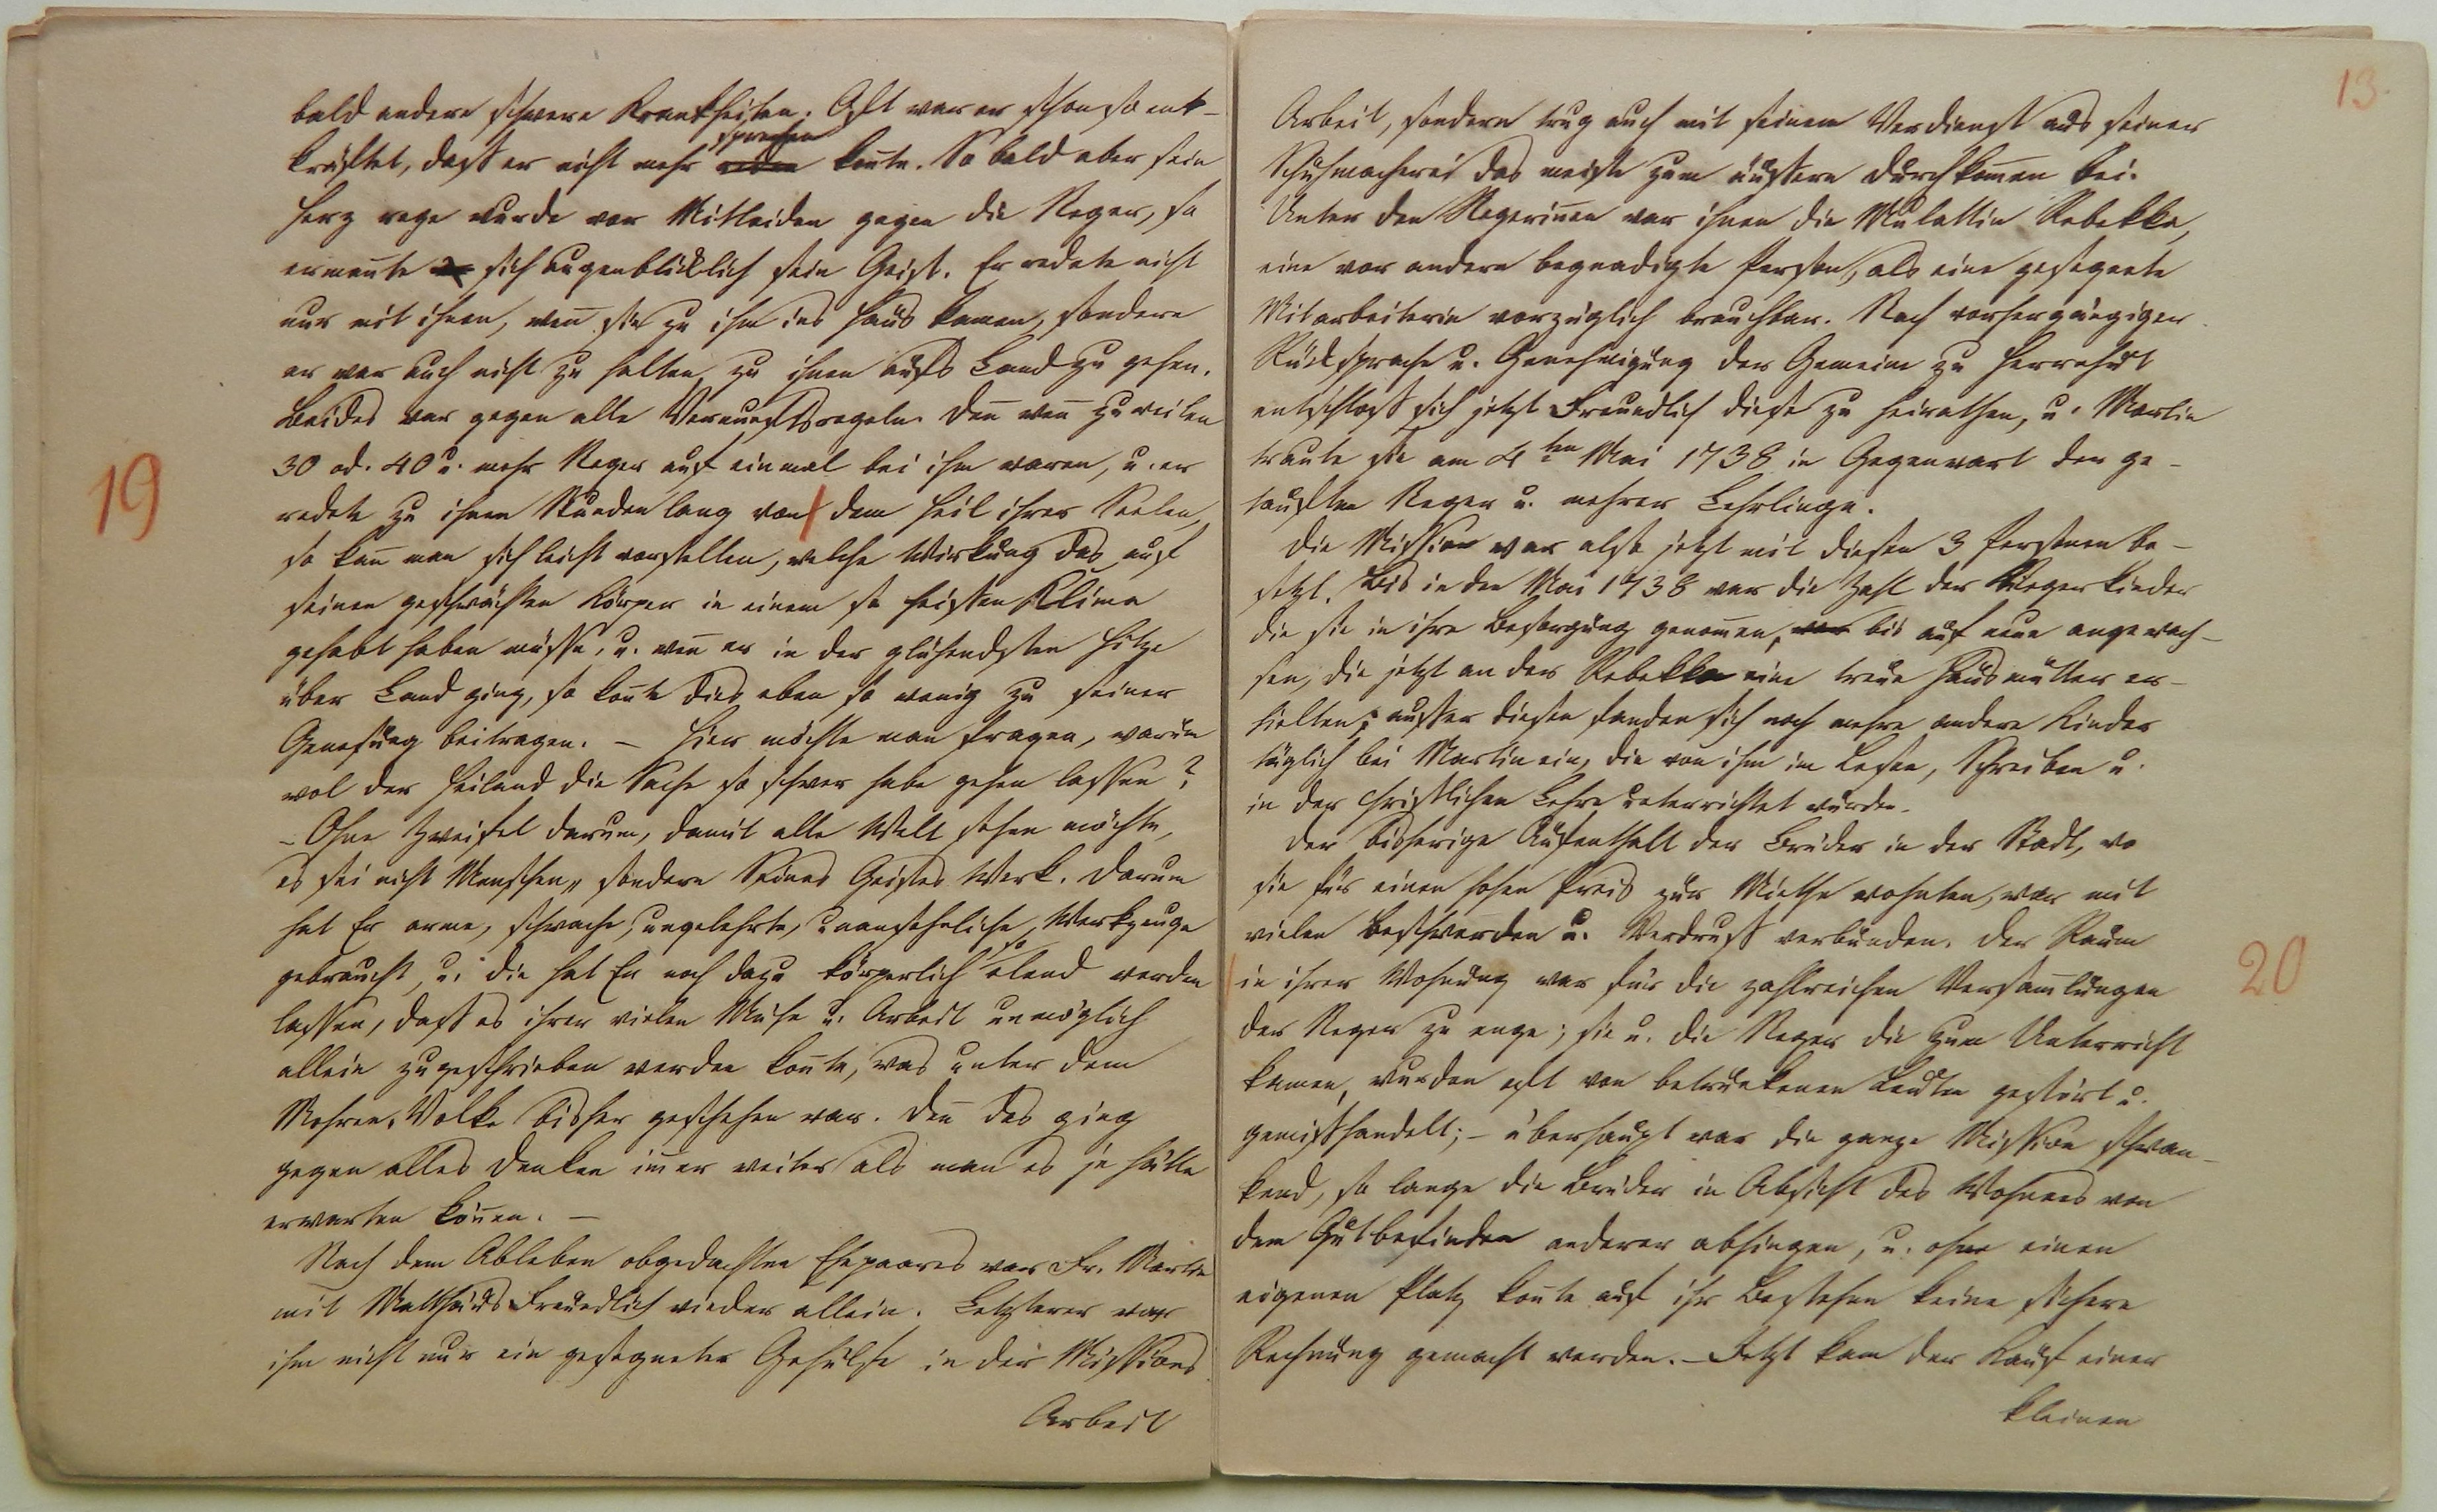 bald andere schwere Krankheiten. Oft war er schon so ent-
kräftet, daß er nicht mehr reden sprechen kon̄te. So bald aber sein
Herz rege wurde vor Mitleiden gegen die Neger, so
erman̄te er sich augenblicklich sein Geist. Er redete nicht
nur mit ihnen, wen̄ sie zu ihm ins Haus kamen, sondern
er war auch nicht zu halten, zu ihnen aufs Land zu gehen.
Beides war gegen alle Vernunftsregeln. Den̄ wen̄ zuweilen
30 od. 40 u. mehr Neger auf einmal bei ihm waren, u. er
19
redete zu ihnen Stunden lang von dem Heil ihrer Seelen,
so kan̄ man sich leicht vorstellen, welche Wirkung das auf
seinen geschwächten Körper in einem so heissen Klima
gehabt haben müsse, u. wen̄ er in der glühendsten Hitze
über Land ging, so kon̄te dies eben so wenig zu seiner
Genesung beitragen. – Hier möchte man fragen, warum
wol der Heiland die Sache so schwer habe gehen lassen?
– Ohne Zweifel darum, damit alle Welt sehen möchte,
es sei nicht Menschen,, sondern Seines Geistes Werk. Darum
hat Er arme, schwache, ungelehrte, unansehnliche Werkzeuge
gebraucht, u. die hat Er noch dazu körperlich so elend werden
lassen, daß es ihrer vielen Mühe u. Arbeit unmöglich
allein zugeschrieben werden kon̄te, was unter dem
Mohren,Volke bisher geschehen war. Den̄ das ging
gegen alles Denken im̄er weiter als man es je hätte
erwarten kön̄en. –
Nach dem Ableben obgedachten Ehepaares war Fr. Martin
mit Matthäus Freundlich wieder allein. Letzterer war
ihm nicht nur ein gesegneter Gehülfe in der Missions
Arbeit
13.
Arbeit, sondern trug auch mit seinem Verdienst aus seiner
Schuhmacherei das meiste zum äußern Durchkom̄en bei.
Unter den Negerin̄en war ihnen die Mulattin Rebekka,
eine vor andern begnadigte Person, als eine gesegnete
Mitarbeiterin vorzüglich brauchbar. Nach vorhergängiger
Rücksprache u. Genehmigung der Gemeine zu Herrnhut
entschloß sich jetzt Freundlich diese zu heirathen, u. Martin
traute sie am 4ten Mai 1738 in Gegenwart der ge-
tauften Neger u. mehrer Lehrlinge.
Die Mission war also jetzt mit diesen 3 Personen be-
setzt. Bis in den Mai 1738 war die Zahl der Negerkinder
die sie in ihre Besorgung genom̄en, war bis auf neun angewach-
sen, die jetzt an der Rebekka eine treue Hausmutter er-
hielten; ausser diesen fanden sich noch mehre andere Kinder
täglich bei Martin ein, die von ihm im Lesen, Schreiben u.
in der christlichen Lehre unterrichtet wurden.
Der bisherige Aufenthalt der Brüder in der Stadt, wo
sie für einen hohen Preis zur Miethe wohnten, war mit
vielen Beschwerden u. Verdruß verbunden. Der Raum
20
in ihrer Wohnung war für die zahlreichen Versam̄lungen
der Neger zu enge; sie u. die Neger die zum Unterricht
kamen, wurden oft von betrunkenen Leuten gestört u.
gemißhandelt; – überhaupt war die ganze Mission schwan-
kend, so lange die Brüder in Absicht des Wohnens von
dem Gutbefinden anderer abhingen, u. ohne einen
eigenen Platz kon̄te auf ihr Bestehen keine sichere
Rechnung gemacht werden. – Jetzt kam der Kauf einer
kleinen